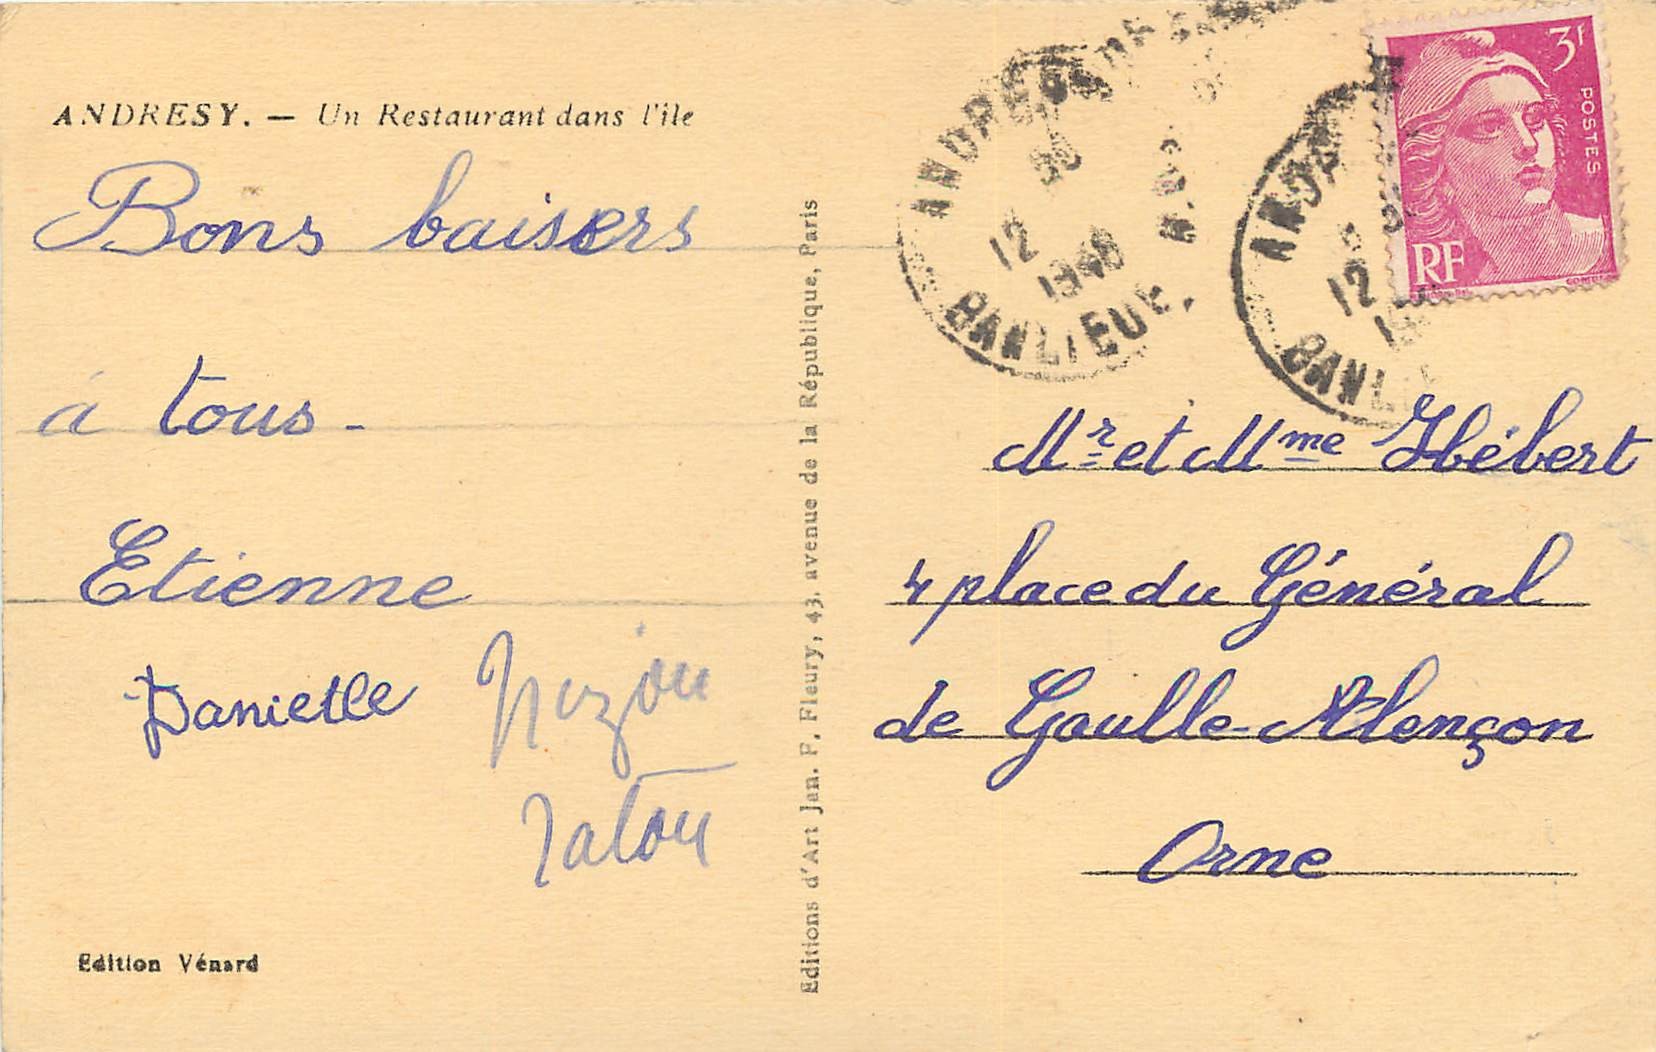 ANDRESY. — Un Restaurant dans l'île
Bons baisers
à tous -
Etienne
Danielle
Tatou
Edition Vénard
Editions d'Art Jan. F. Fleury, 43, avenue de la République, Paris
ANDRESY
12
1948
BANLIEUE
3f
POSTES
RF
12
Mr et Mme Hébert
4 place du Général
de Gaulle - Alençon
Orne